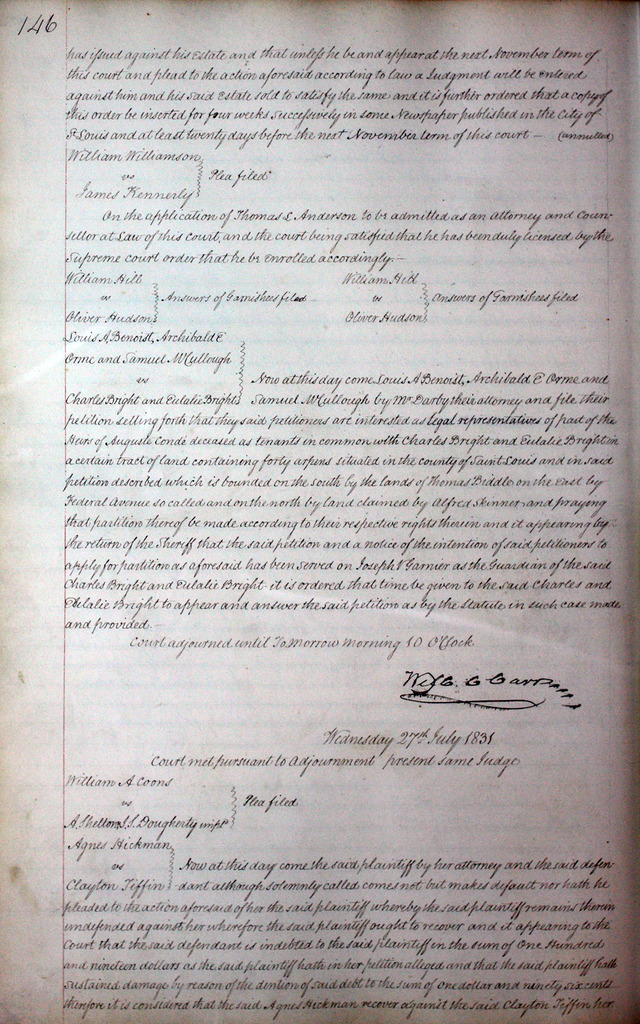 146
has issued against his Estate and that unless he be and appear at the next November term of
this court and plead to the action aforesaid according to law a Judgment will be entered
against him and his said Estate sold to satisfy the same and it is further ordered that a copy of
this order be inserted for four weeks successively in some Newspaper published in the City of
St Louis and at least twenty days before the next November term of this court — (annulled)
William Williamson
vs Plea filed
James Kennerly
On the application of Thomas L Anderson to be admitted as an Attorney and Coun-
sellor at Law of this court, and the court being satisfied that he has been duly licensed by the
Supreme court order that he be enrolled accordingly.—
William Hill William Hill
vs Answers of Garnishees filed vs Answers of Garnishees filed
Oliver Hudson Oliver Hudson
Louis A Benoist, Archibald E
Orme and Samuel McCullough
vs Now at this day come Louis A Benoist, Archibald E Orme and
Charles Bright and Eulalie Bright Samuel McCullough by Mr Darby their attorney and file their
petition setting forth that they said petitioners are interested as legal representatives of part of the
Heirs of Auguste Condé deceased as tenants in common with Charles Bright and Eulalie Bright in
a certain tract of land containing forty arpens situated in the county of Saint Louis and in said
petition described which is bounded on the south by the lands of Thomas Biddle on the East by
Federal Avenue so called and on the north by land claimed by Alfred Skinner, and praying
that partition thereof be made according to their respective rights therein and it appearing by
the return of the Sheriff that the said petition and a notice of the intention of said petitioners to
apply for partition as aforesaid has been served on Joseph V Garnier as the Guardian of the said
Charles Bright and Eulalie Bright it is ordered that time be given to the said Charles and
Eulalie Bright to appear and answer the said petition as by the Statute in such case made
and provided.—
Court adjourned until To Morrow morning 10 O'Clock
Wm C Carr
Wednesday 27th July 1831
Court met pursuant to Adjournment present same Judge
William A Coons
vs Plea filed
A Shelton, S. S. Dougherty
Agnes Hickman
vs Now at this day come the said plaintiff by her attorney and the said defen-
Clayton Tiffin dant although solemnly called comes not but makes default nor hath he
pleaded to the action aforesaid of her the said plaintiff whereby the said plaintiff remains therein
undefended against her wherefore the said plaintiff ought to recover and it appearing to the
Court that the said defendant is indebted to the said plaintiff in the sum of One Hundred
and nineteen dollars as the said plaintiff hath in her petition alleged and that the said plaintiff hath
sustained damage by reason of the dention of said debt to the sum of one dollar and ninety six cents
therefore it is considered that the said Agnes Hickman recover against the said Clayton Tiffin her